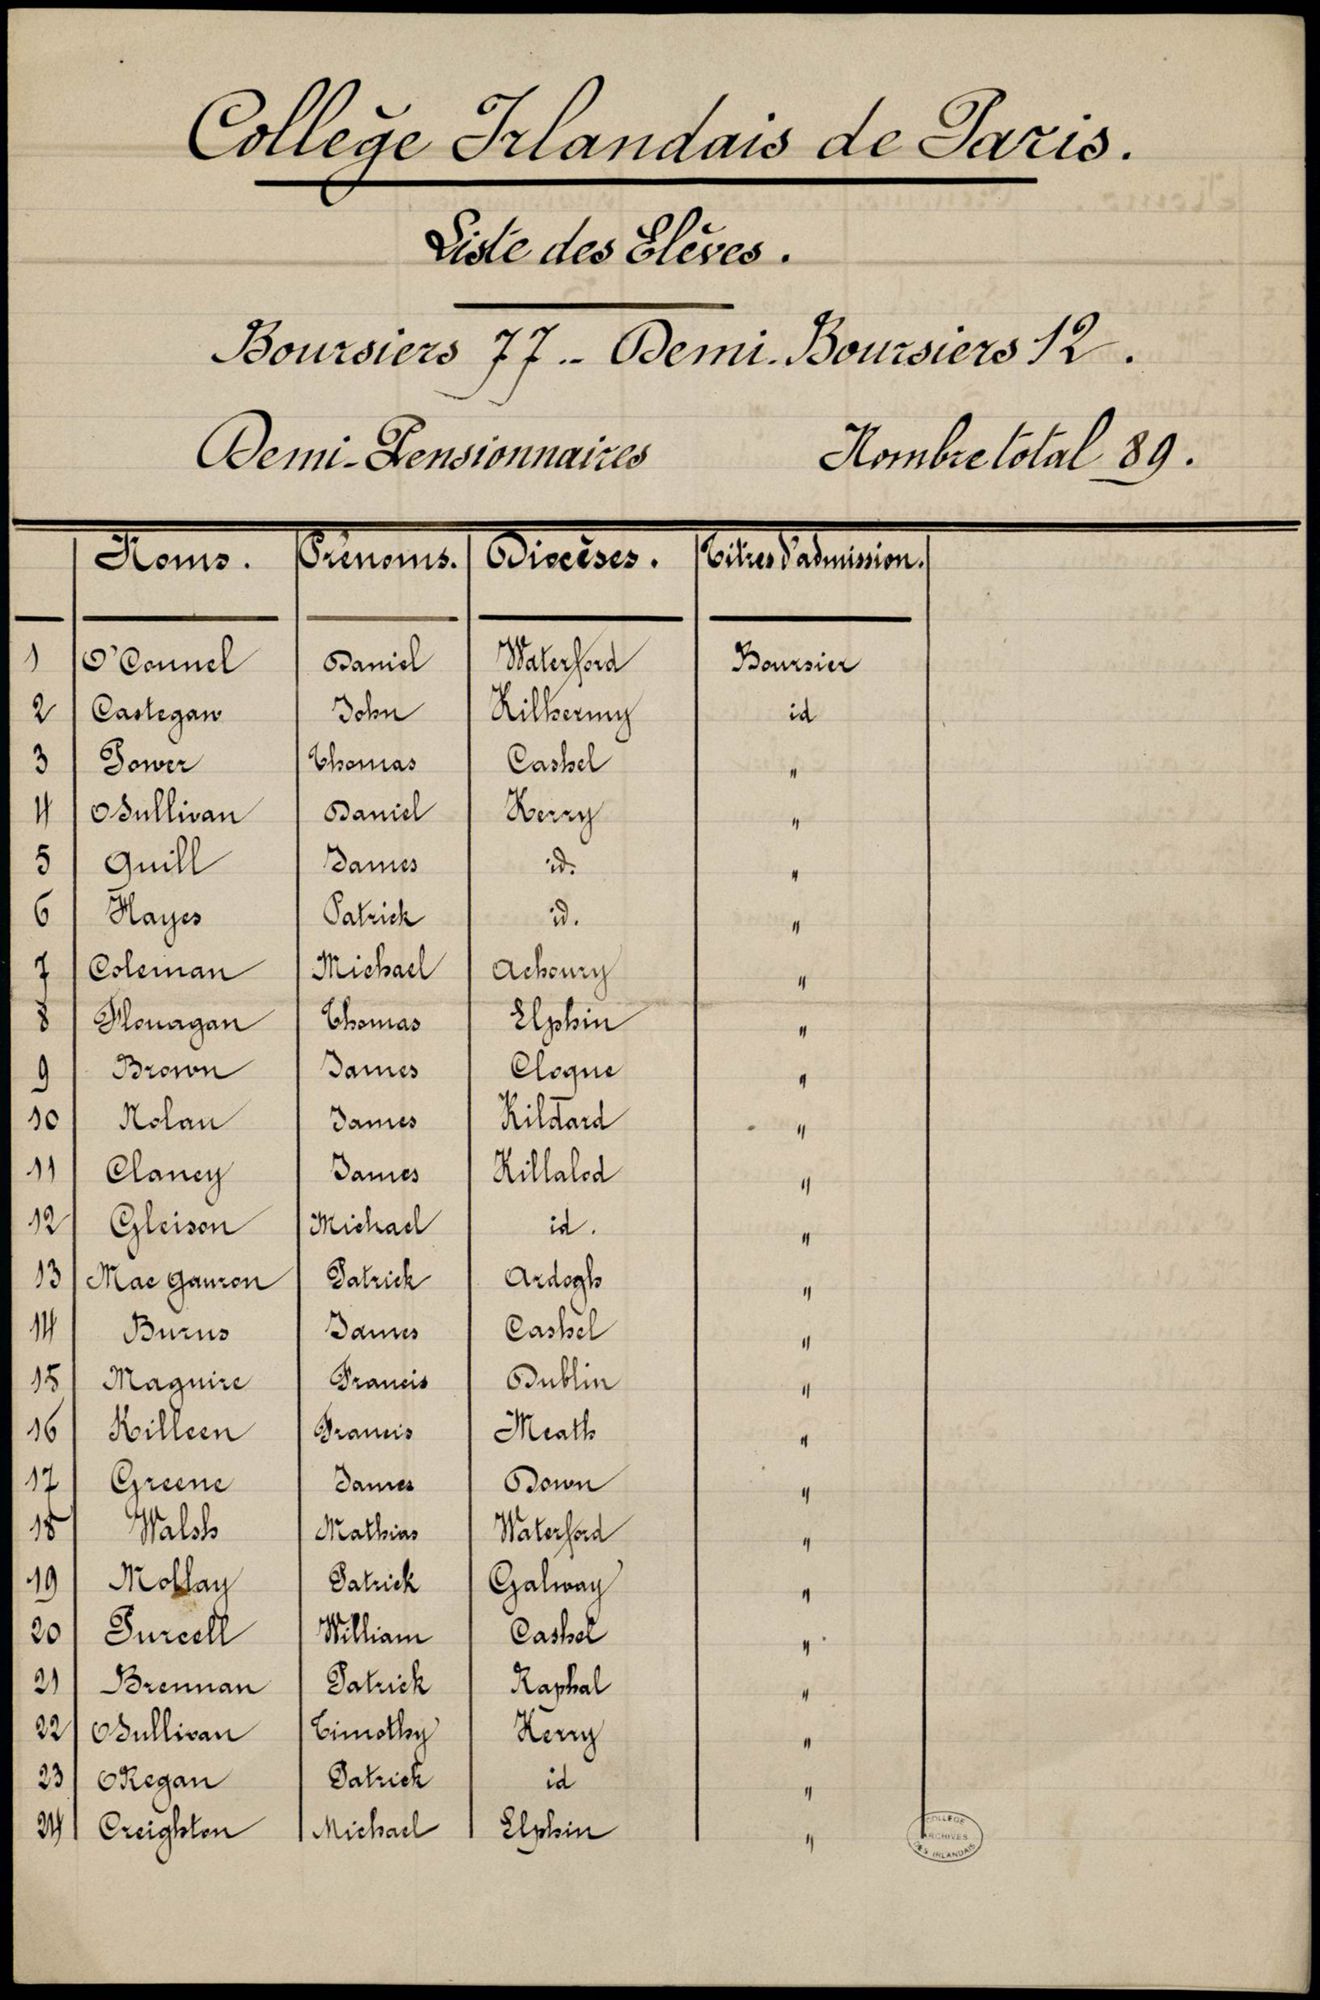 Collège Irlandais de Paris.
Liste des Elèves.
Boursiers 77 - Demi-Boursiers 12.
Demi-Pensionnaires Nombre total 89.
Noms. Prénoms. Diocèses. Titres d'admission.
1 O'Connel Daniel Waterford Boursier
2 Castegan John Kilkermy id
3 Power Thomas Cashel "
4 OSullivan Daniel Kerry "
5 Quill James id. "
6 Hayes Patrick id. "
7 Coleman Michael Achonry "
8 Flonagan Thomas Elphin "
9 Brown James Clogne "
10 Nolan James Kildard "
11 Clancy James Killalod "
12 Gleison Michael id. "
13 Mac Gauron Patrick Ardogh "
14 Burns James Cashel "
15 Maguire Francis Dublin "
16 Killeen Francis Meath "
17 Greene James Down "
18 Walsh Mathias Waterford "
19 Mollay Patrick Galway "
20 Purcell William Cashel "
21 Brennan Patrick Raphal "
22 OSullivan Timothy Kerry "
23 ORegan Patrick id "
24 Creighton Michael Elphin "
COLLEGE
ARCHIVES
DES IRLANDAIS